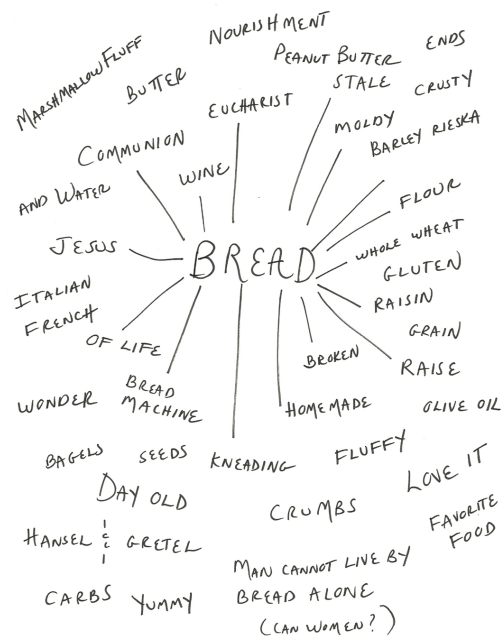 NOURISHMENT
MARSHMALLOW FLUFF
BUTTER
PEANUT BUTTER
ENDS
STALE
CRUSTY
EUCHARIST
MOLDY
BARLEY RIESKA
COMMUNION
WINE
AND WATER
FLOUR
JESUS
BREAD
WHOLE WHEAT
GLUTEN
ITALIAN
FRENCH
RAISIN
GRAIN
OF LIFE
BROKEN
RAISE
WONDER
BREAD
MACHINE
HOMEMADE
OLIVE OIL
BAGELS
SEEDS
KNEADING
FLUFFY
LOVE IT
DAY OLD
CRUMBS
FAVORITE
FOOD
HANSEL
GRETEL
MAN CANNOT LIVE BY
BREAD ALONE
(CAN WOMEN?)
CARBS
YUMMY